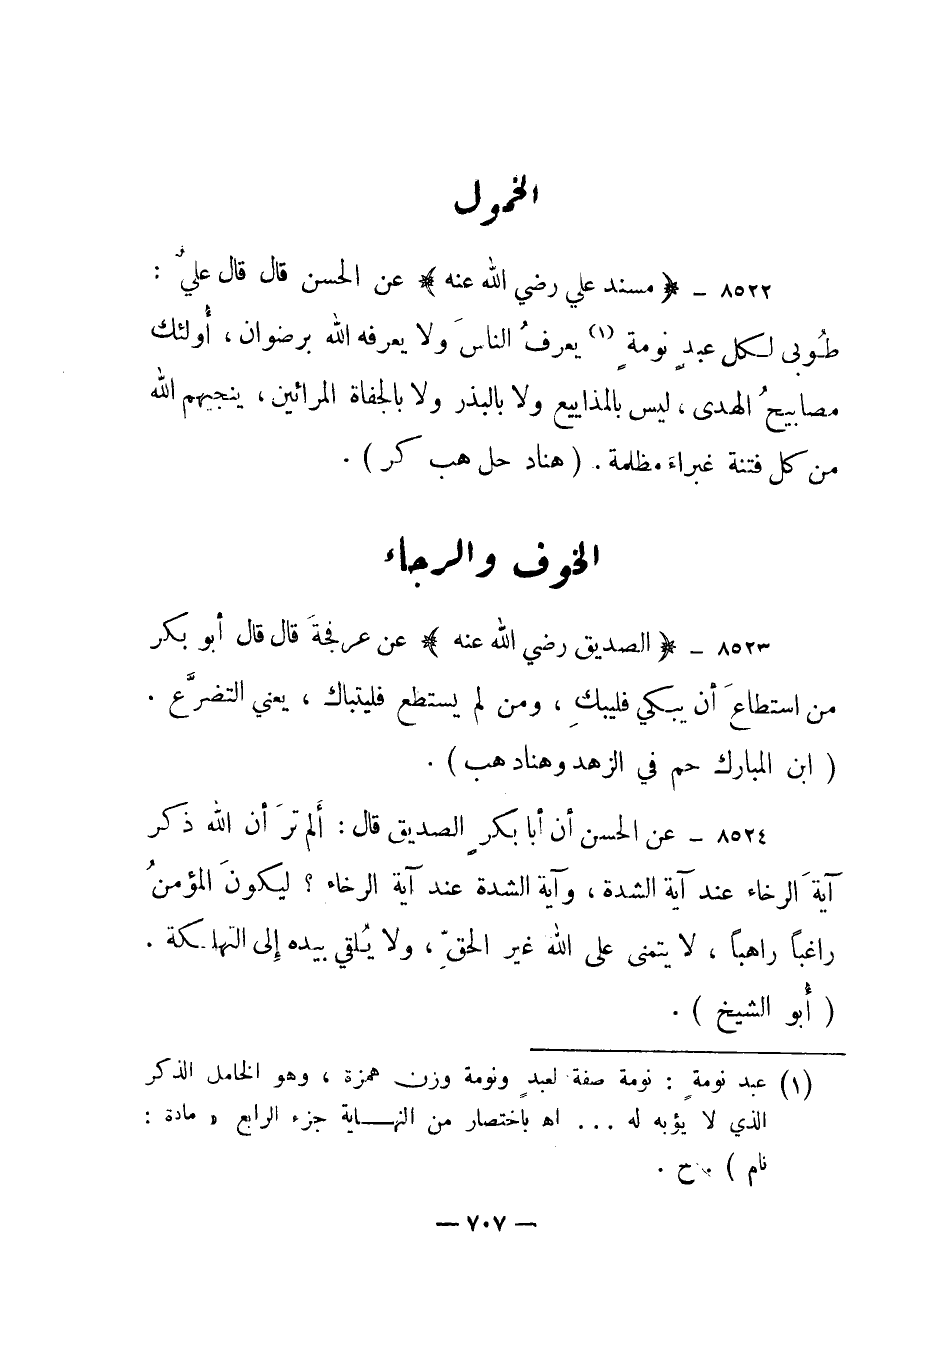 الخمول
٨٥٢٢ – ﴿ مسند علي رضي الله عنه ﴾ عن الحسن قال قال عليٌّ :
طُوبى لكل عبدٍ نومةٍ (١) يعرفُ الناسَ ولا يعرفه الله برضوان ، أُولئك
مصابيحُ الهدى ، ليس بالمذاييع ولا بالبذر ولا بالجفاة المرائين ، ينجيهم الله
من كل فتنة غبراءَ مظلمة . ( هناد حل هب كر ) .
الخوف والرجاء
٨٥٢٣ – ﴿ الصديق رضي الله عنه ﴾ عن عرفجةَ قال قال أبو بكر
من استطاعَ أن يبكي فليبكِ ، ومن لم يستطع فليتباك ، يعني التضرَّع .
( ابن المبارك حم في الزهد وهناد هب ) .
٨٥٢٤ – عن الحسن أن أبا بكرٍ الصديق قال : أَلم ترَ أن الله ذكر
آيةَ الرخاء عند آية الشدة ، وآية الشدة عند آية الرخاء ؟ ليكونَ المؤمنُ
راغباً راهباً ، لا يتمنى على الله غير الحقِّ ، ولا يُلقي بيده إلى التهلكة .
( أُبو الشيخ ) .
(١) عبد نومةٍ : نومة صفة لعبدٍ ونومة وزن همزة ، وهو الخامل الذكر
الذي لا يؤبه له ... اه باختصار من النهاية جزء الرابع « مادة :
نام ) . ح .
— ٧٠٧ —